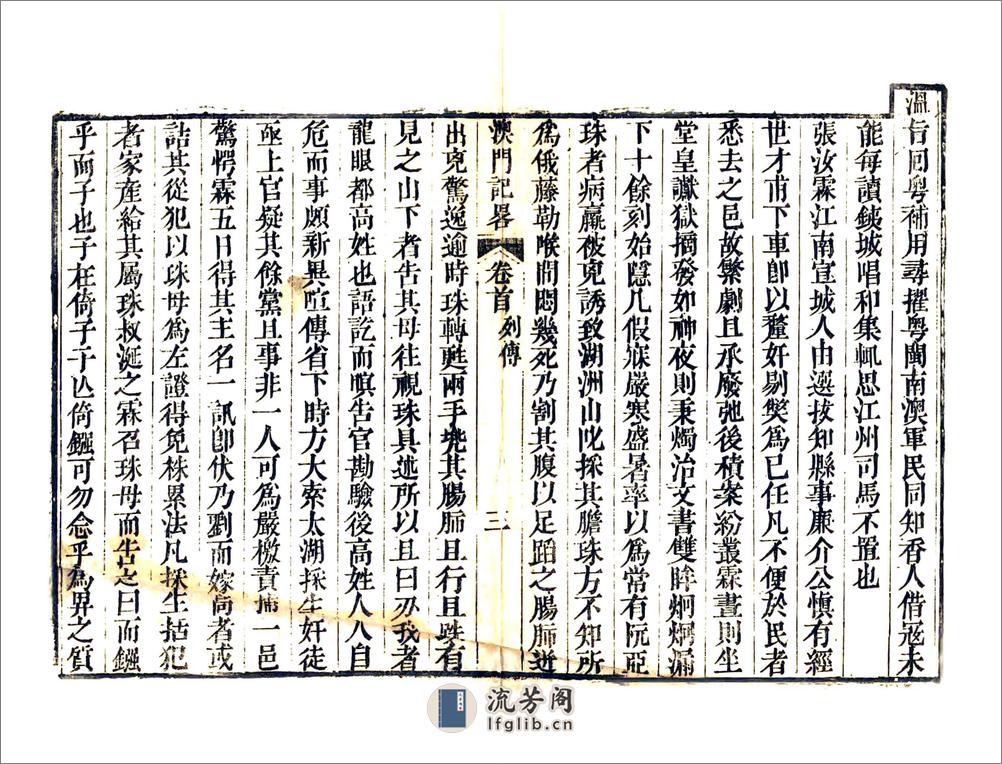 溫旨回粵補用尋擢粵閩南澳軍民同知香人借冦未
能每讀銕城唱和集輒思江州司馬不置也
張汝霖江南宣城人由選拔知縣事廉介公慎有經
世才甫下車即以釐奸剔獘為已任凡不便於民者
悉去之邑故繁劇且承廢弛後積案紛叢霖晝則坐
堂皇讞獄摘發如神夜則秉燭治文書雙眸炯炯漏
下十餘刻始隱几假寐嚴寒盛暑率以為常有阮亞
珠者病羸被兇誘致湖洲山叱採其膽珠方不知所
為俄藤勒喉間悶幾死乃割其腹以足蹈之腸胏迸
澳門記畧 卷首 列傳 三
出兇驚逸逾時珠轉甦兩手㧬其腸胏且行且跌有
見之山下者告其母往視珠具述所以且曰刅我者
龍眼都高姓也語訖而暝告官勘驗後高姓人人自
危而事頗新異喧傳省下時方大索太湖採生奸徒
亟上官疑其餘黨且事非一人可為嚴檄責捕一邑
驚愕霖五日得其主名一訊卽伏乃劉而嫁
詰其從犯以珠母為左證得免株累法凡採生括犯
者家產給其屬珠叔涎之霖召珠母而告之曰而鏹
乎而子也子在倚子子亾倚鏹可勿念乎為畀之質
流芳阁
lfglib.cn